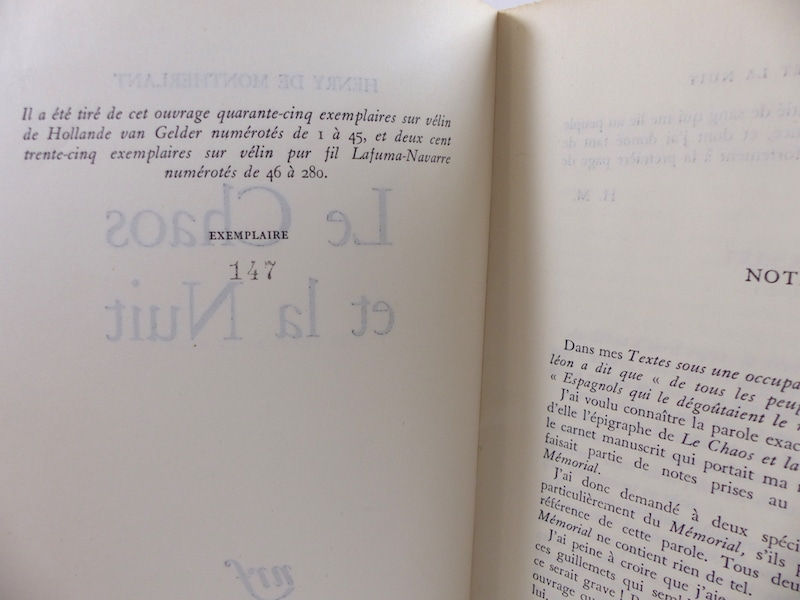 Il a été tiré de cet ouvrage quarante-cinq exemplaires sur vélin
de Hollande van Gelder numérotés de 1 à 45, et deux cent
trente-cinq exemplaires sur vélin pur fil Lafuma-Navarre
numérotés de 46 à 280.
EXEMPLAIRE
147
HENRY DE MONTHERLANT
Le Chaos
et la Nuit
nrf
ET LA NUIT
de sang qui me lie au peuple
et dont j'ai donné tant de
à la première page de
H. M.
NOT
Dans mes Textes sous une occupa
léon a dit que « de tous les peup
« Espagnols qui le dégoûtaient le
J'ai voulu connaître la parole exac
d'elle l'épigraphe de Le Chaos et la
le carnet manuscrit qui portait ma
faisait partie de notes prises au
Mémorial.
J'ai donc demandé à deux spéci
particulièrement du Mémorial, s'ils
référence de cette parole. Tous deu
Mémorial ne contient rien de tel.
J'ai peine à croire que j'aie
ces guillemets qui sembl
ce serait grave !
ouvrage qu
lui.